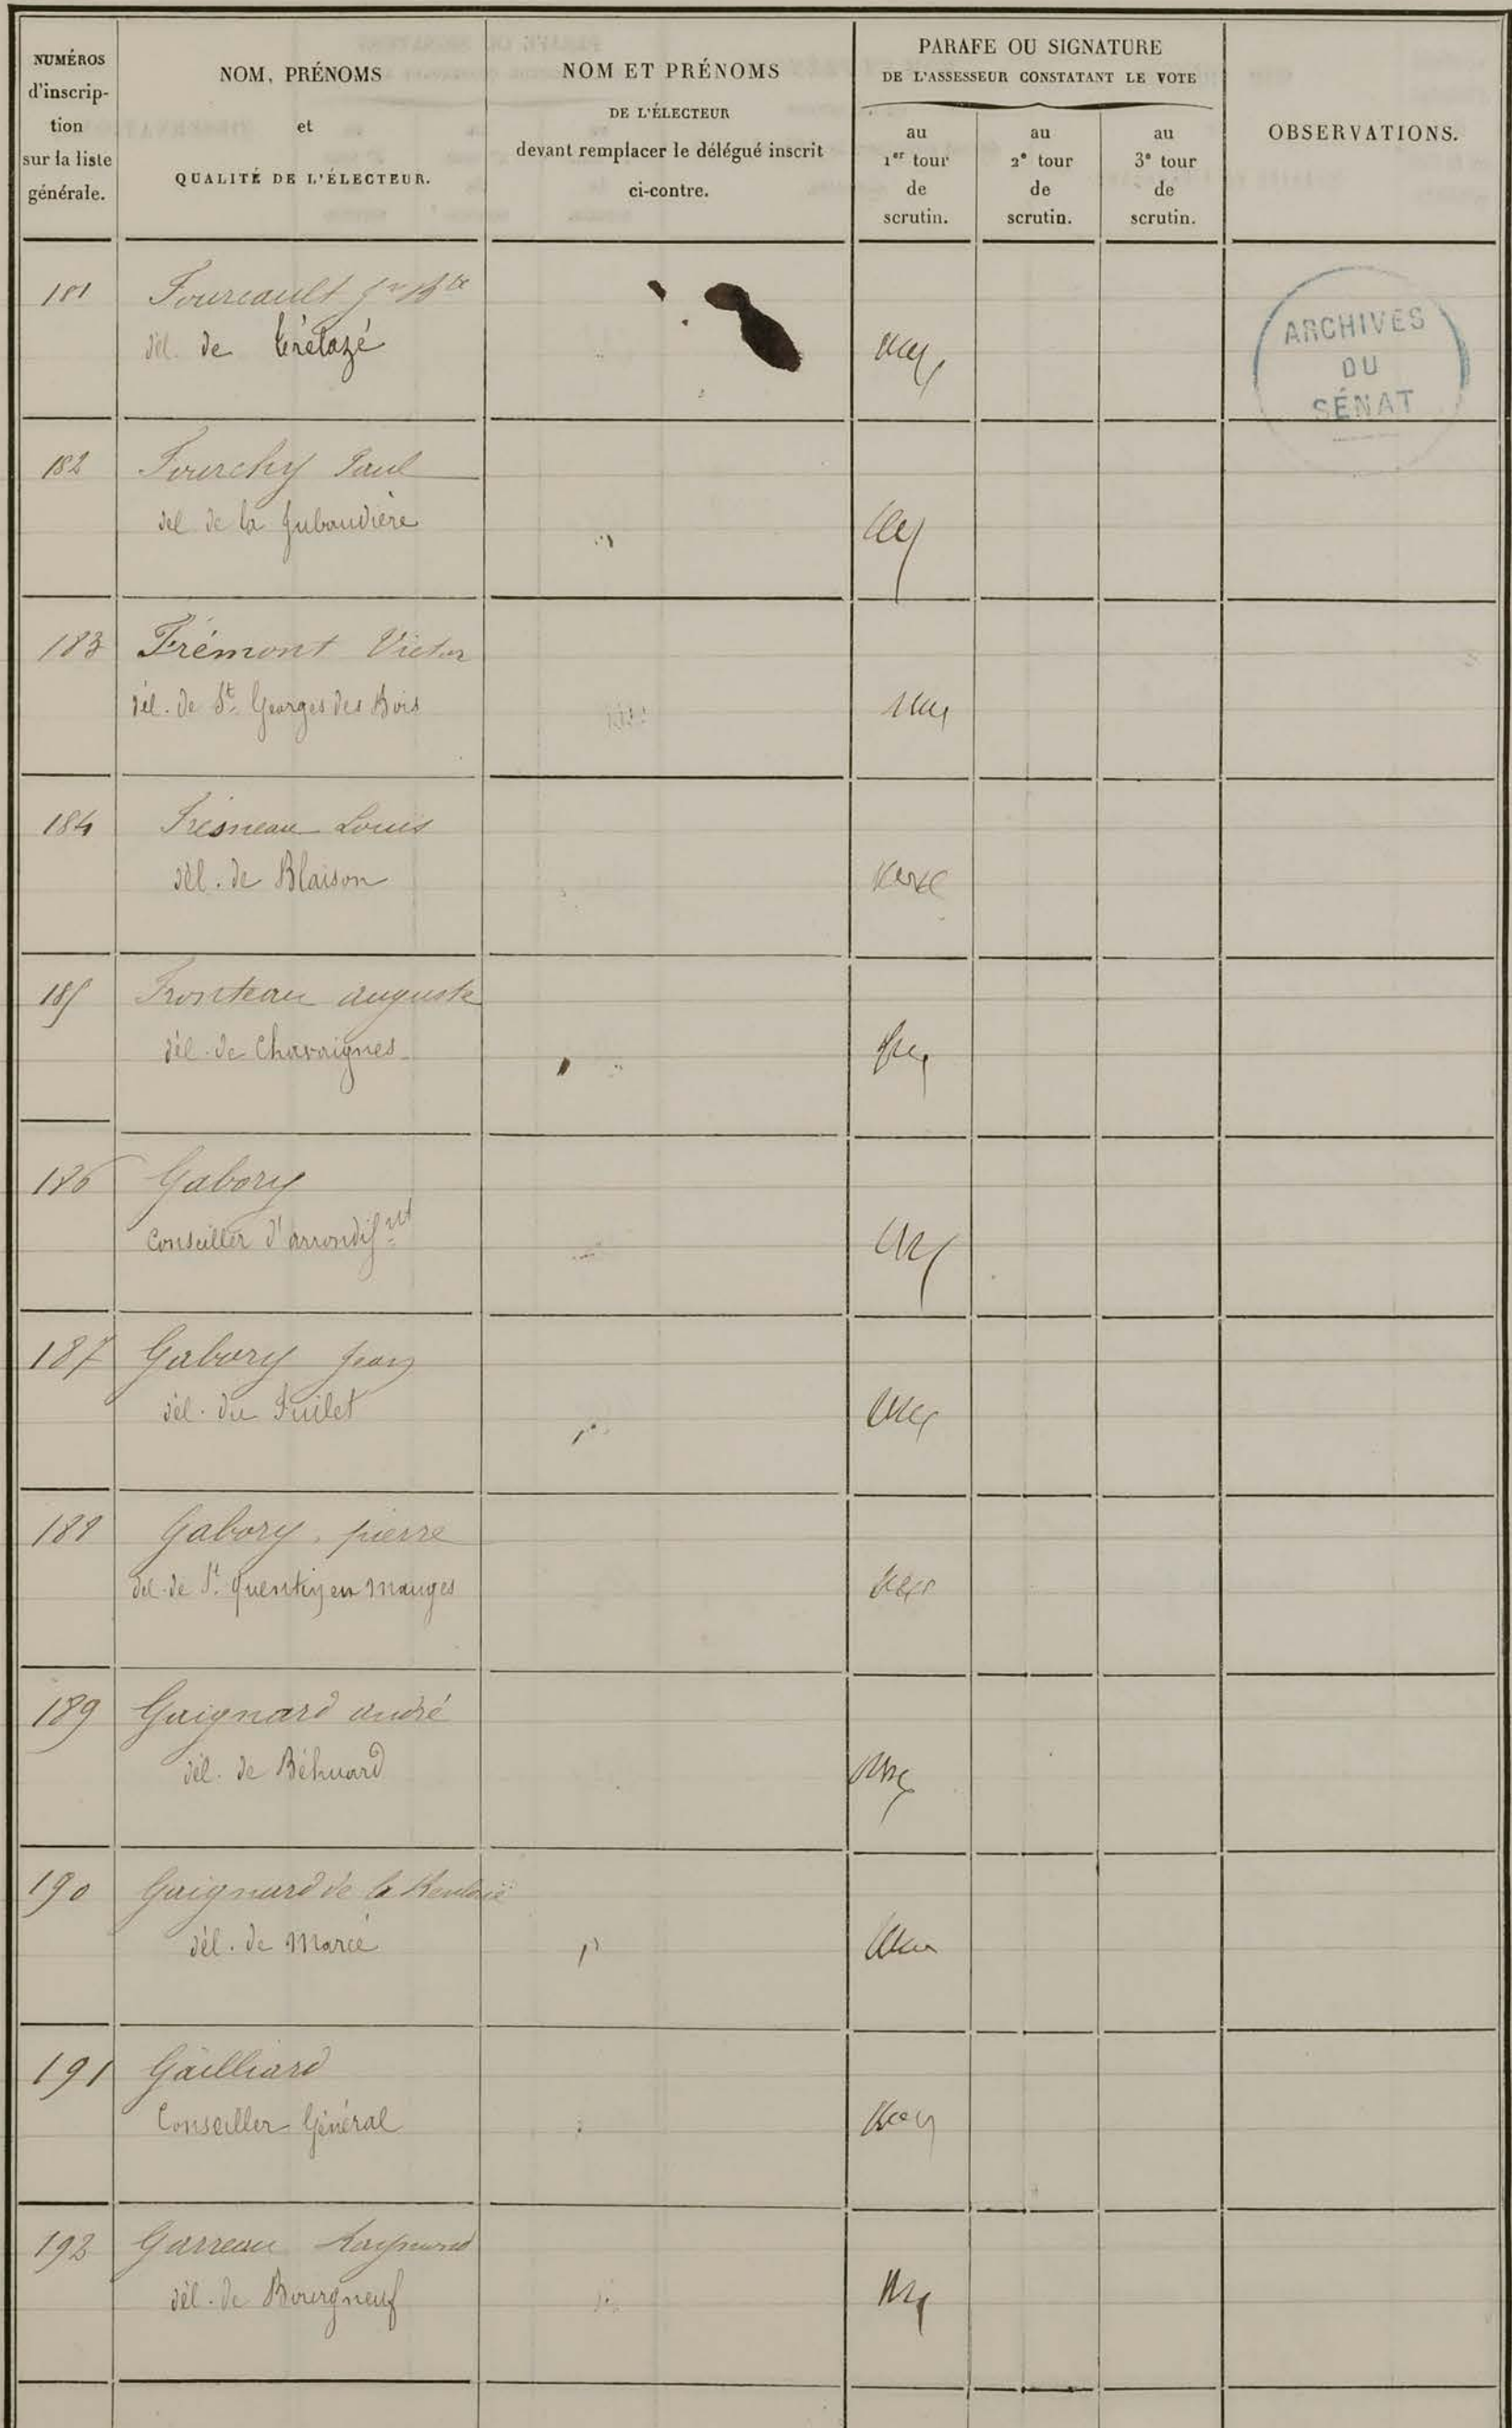 NUMÉROS
d'inscrip-
tion
sur la liste
générale.
NOM, PRÉNOMS
et
QUALITÉ DE L'ÉLECTEUR.
NOM ET PRÉNOMS
DE L'ÉLECTEUR
devant remplacer le délégué inscrit
ci-contre.
PARAFE OU SIGNATURE
DE L'ASSESSEUR CONSTATANT LE VOTE
au
1er tour
de
scrutin.
au
2e tour
de
scrutin.
au
3e tour
de
scrutin.
OBSERVATIONS.
ARCHIVES
DU
SÉNAT
181 Fourcault Jn Bte
dél. de Trélazé
182 Fourchy Paul
dél de la Jubaudière
183 Frémont Victor
dél. de St Georges des Bois
184 Fresneau Louis
dél. de Blaison
185 Fronteau auguste
dél. de Chavaignes
186 Gabory
Conseiller d'arrondisnt
187 Gabory Jean
dél. du Fuilet
188 Gabory pierre
dél. de St quentin en Mauges
189 Gaignard andré
dél. de Béhuard
190 Gaignard de la
dél. de Marcé
191 Gailliard
Conseiller Général
192 Garreau Raymond
dél. de Bourgneuf